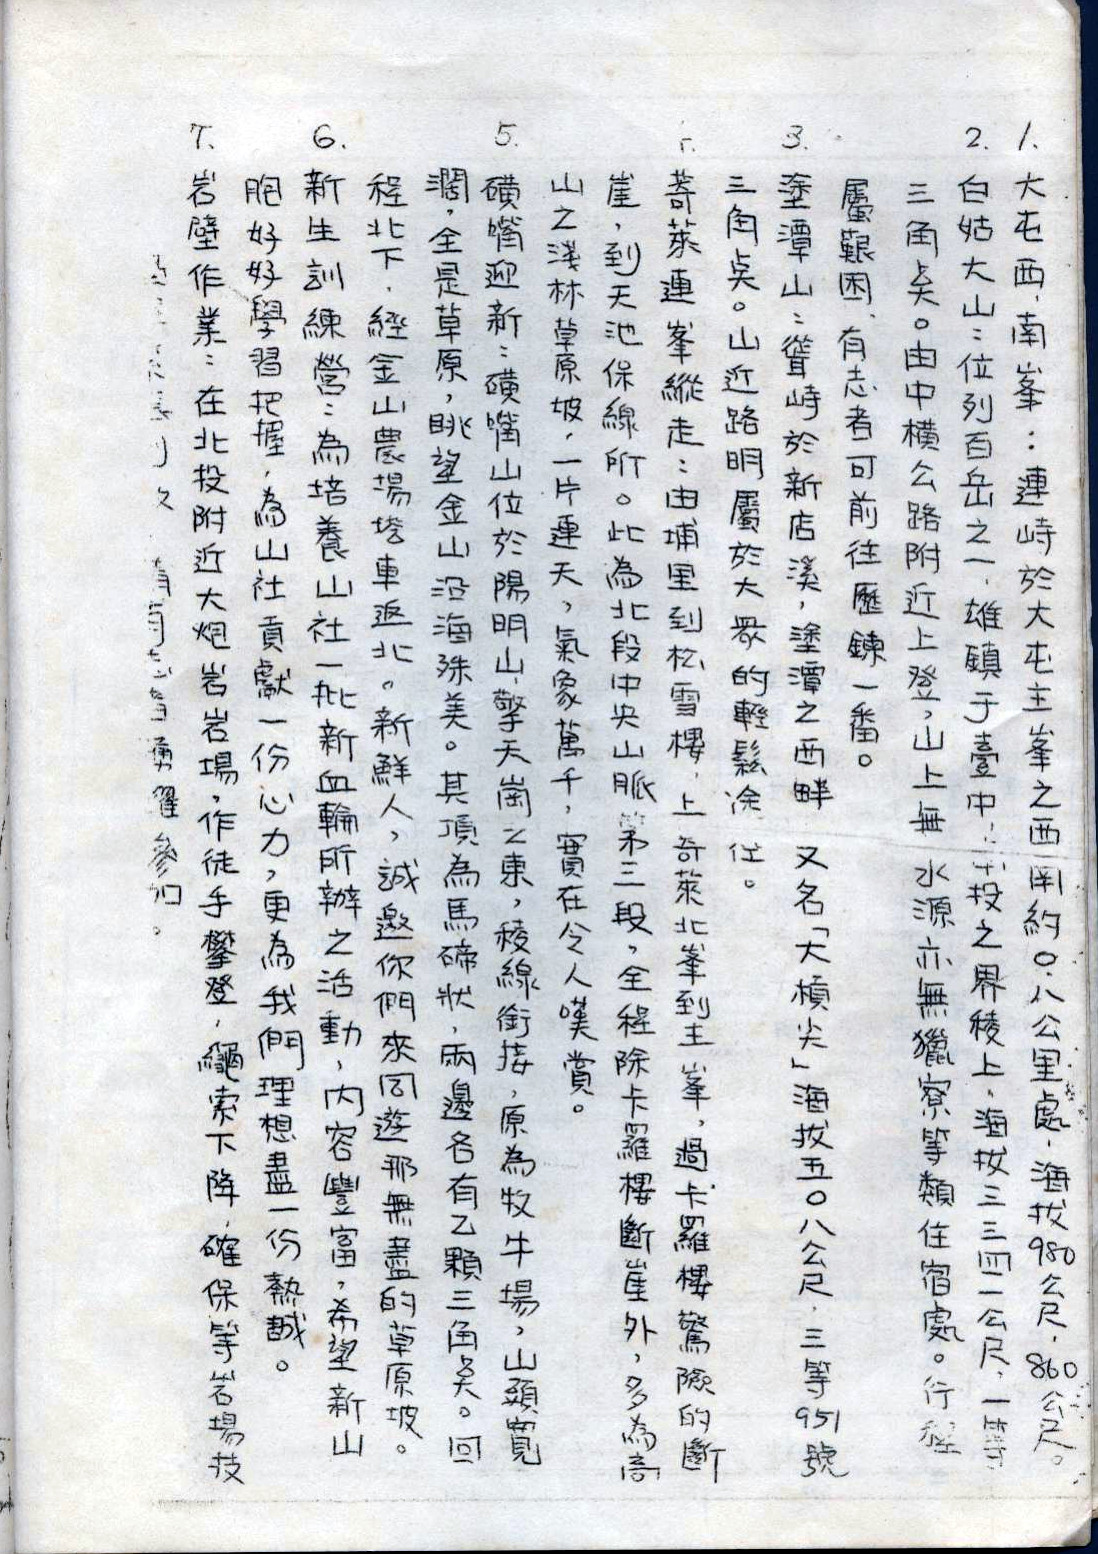 1. 大屯西、南峯：連峙於大屯主峯之西南約0.八公里處，海拔980公尺，860公尺。
2. 白姑大山：位列百岳之一，雄鎮于臺中、投之界稜上，海拔三三四一公尺，一等
三角点。由中橫公路附近上登，山上無水源亦無獵寮等類住宿處。行程
屬艱困，有志者可前往歷鍊一番。
3. 塗潭山：聳峙於新店溪，塗潭之西畔 又名「大楨尖」海拔五０八公尺，三等951號
三角点。山近路明屬於大眾的輕鬆途徑。
奇萊連峯縱走：由埔里到松雪樓，上奇萊北峯到主峯，過卡羅樓驚險的斷
崖，到天池保線所。此為北段中央山脈第三段，全程除卡羅樓斷崖外，多為高
山之淺林草原坡，一片連天，氣象萬千，實在令人嘆賞。
5. 磺嘴迎新：磺嘴山位於陽明山、擎天崗之東，稜線銜接，原為牧牛場，山頭寬
濶，全是草原，眺望金山沿海殊美。其頂為馬碲狀，兩邊各有乙顆三角点。回
程北下，經金山農場搭車返北。新鮮人，誠邀你們來同遊那無盡的草原坡。
6. 新生訓練營：為培養山社一批新血輪所辦之活動，內容豐富，希望新山
胞好好學習把握，為山社貢獻一份心力，更為我們理想盡一份熱誠。
7. 岩壁作業：在北投附近大炮岩岩場，作徒手攀登，繩索下降，確保等岩場技
有志者踴躍參加。